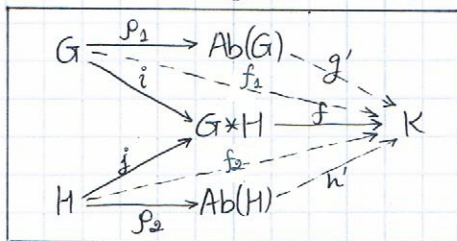 G ρ₁ Ab(G) g'
i f₁
G*H f K
j f₂
H ρ₂ Ab(H) h'